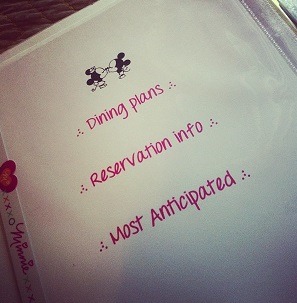 Dining plans
Reservation info
Most Anticipated
xxxo Minnie